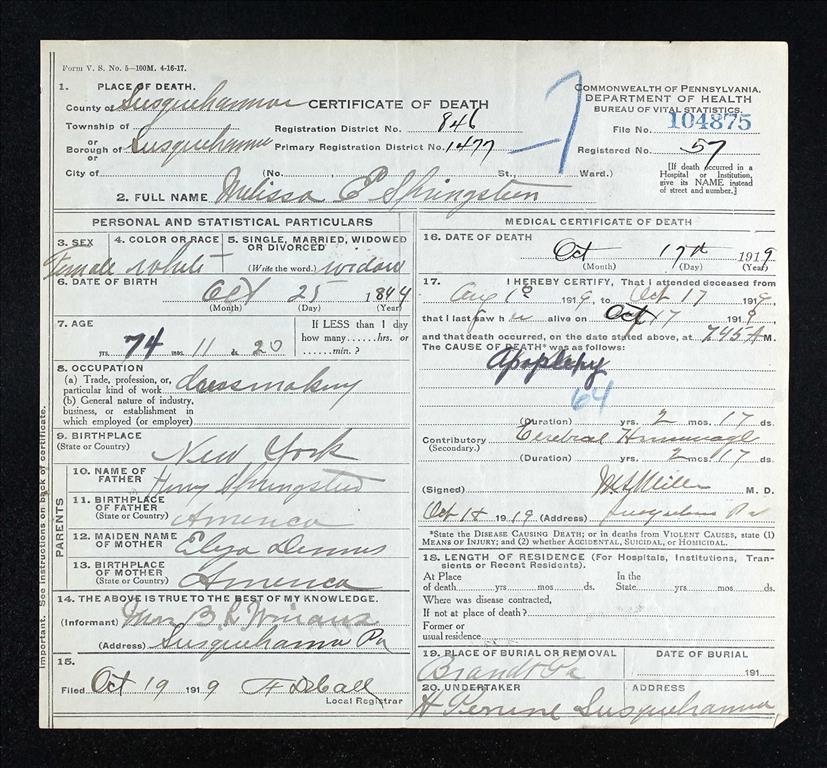 Form V. S. No. 5—100M. 4-16-17.
1. PLACE OF DEATH.
County of Susquehanna
Township of
or
Borough of Susquehanna
or
City of
CERTIFICATE OF DEATH
Registration District No. 846
Primary Registration District No. 1477
(No. , St., Ward.)
COMMONWEALTH OF PENNSYLVANIA.
DEPARTMENT OF HEALTH
BUREAU OF VITAL STATISTICS.
File No. 104875
Registered No. 57
[If death occurred in a
Hospital or Institution,
give its NAME instead
of street and number.]
2. FULL NAME Melissa E Springsteen
PERSONAL AND STATISTICAL PARTICULARS
3. SEX
Female
4. COLOR OR RACE
White
5. SINGLE, MARRIED, WIDOWED
OR DIVORCED
(Write the word.) widow
6. DATE OF BIRTH
Oct 25 1844
(Month) (Day) (Year)
7. AGE
74 yrs. 11 mos. 20 ds.
If LESS than 1 day
how many......hrs. or
......min. ?
8. OCCUPATION
(a) Trade, profession, or
particular kind of work dressmaking
(b) General nature of industry,
business, or establishment in
which employed (or employer)
9. BIRTHPLACE
(State or Country) New York
PARENTS
10. NAME OF
FATHER Henry Springsteed
11. BIRTHPLACE
OF FATHER
(State or Country) America
12. MAIDEN NAME
OF MOTHER Eliza Dennis
13. BIRTHPLACE
OF MOTHER
(State or Country) America
14. THE ABOVE IS TRUE TO THE BEST OF MY KNOWLEDGE.
(Informant) Mrs B Winans
(Address) Susquehanna Pa
15.
Filed Oct 19 1919
Local Registrar
Important. See instructions on back of certificate.
MEDICAL CERTIFICATE OF DEATH
16. DATE OF DEATH
Oct 17th 1919
(Month) (Day) (Year)
17. I HEREBY CERTIFY, That I attended deceased from
Aug 1st 1919, to Oct 17 1919
that I last saw her alive on Oct 17 1919
and that death occurred, on the date stated above, at 745 A M.
The CAUSE OF DEATH* was as follows:
Apoplexy
64
(Duration) yrs. 2 mos. 17 ds.
Contributory Cerebral Hemorrhage
(Secondary.)
(Duration) yrs. 2 mos. 17 ds.
(Signed) Miller M. D.
Oct 18 1919 (Address) Susquehanna Pa
*State the DISEASE CAUSING DEATH; or in deaths from VIOLENT CAUSES, state (1)
MEANS OF INJURY; and (2) whether ACCIDENTAL, SUICIDAL, or HOMICIDAL.
18. LENGTH OF RESIDENCE (For Hospitals, Institutions, Tran-
sients or Recent Residents).
At Place
of death......yrs......mos......ds.
In the
State......yrs......mos......ds.
Where was disease contracted,
If not at place of death?
Former or
usual residence
19. PLACE OF BURIAL OR REMOVAL
Brandt Pa
DATE OF BURIAL
191
20. UNDERTAKER
H Perrine
ADDRESS
Susquehanna